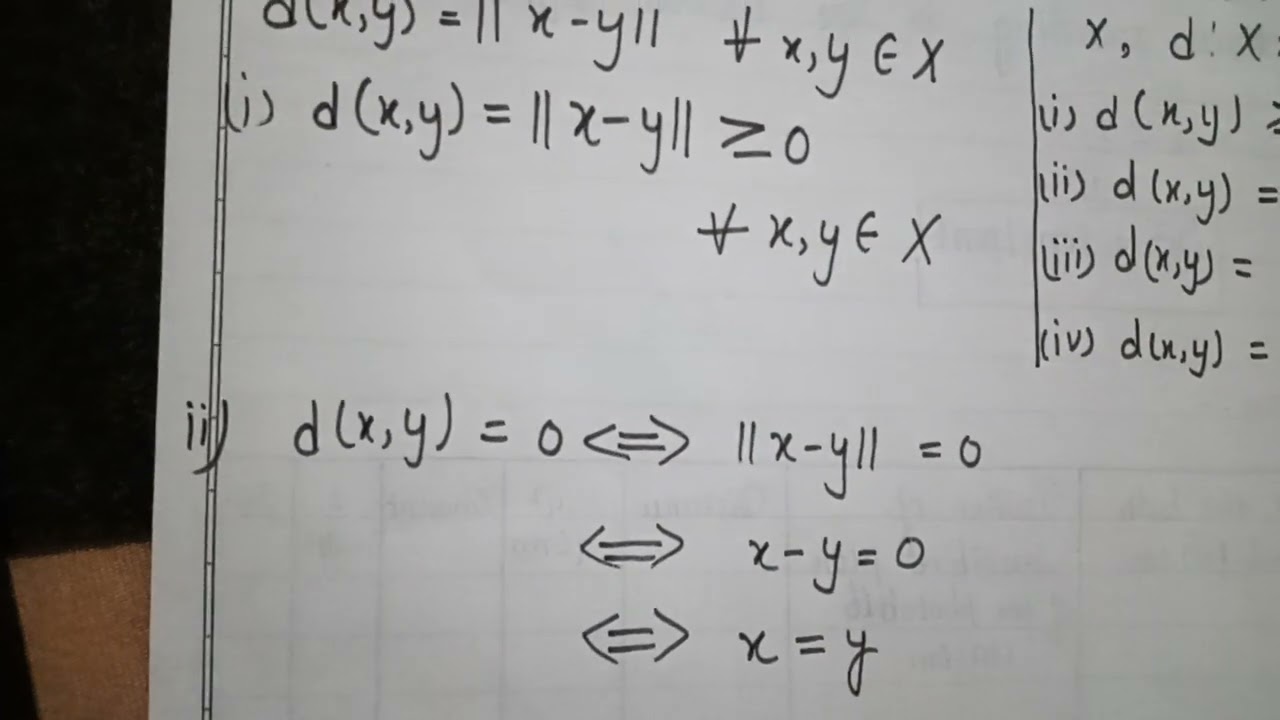 d(x,y) = || x-y || ∀ x,y ∈ X
(i) d(x,y) = || x-y || ≥ 0
∀ x,y ∈ X
ii) d(x,y) = 0 ⟺ || x-y || = 0
⟺ x-y = 0
⟺ x = y
X, d: X
(i) d(x,y) ≥
(ii) d(x,y) =
(iii) d(x,y) =
(iv) d(x,y) =